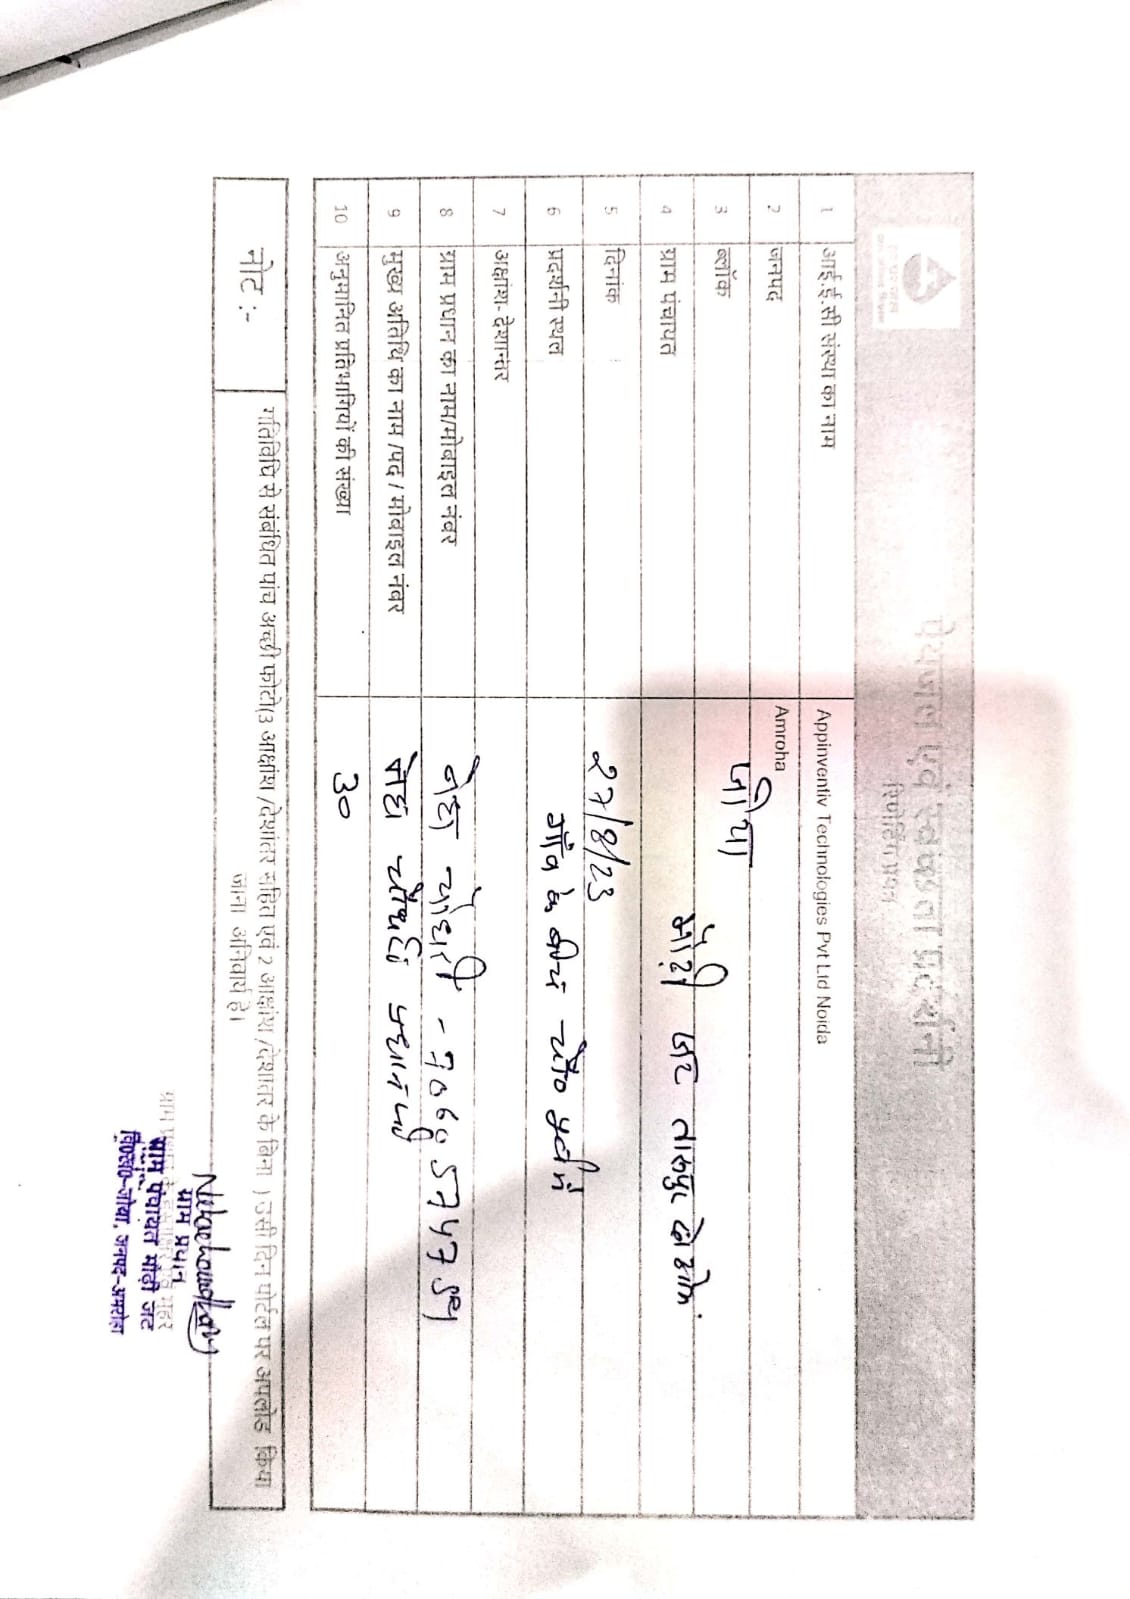 पेयजल एवं स्वच्छता प्रदर्शनी
रिपोर्टिंग प्रपत्र
1 आई.ई.सी संस्था का नाम Appinventiv Technologies Pvt Ltd Noida
2 जनपद Amroha
3 ब्लॉक जोया
4 ग्राम पंचायत मोढ़ी जट
5 दिनांक 27/8/23
6 प्रदर्शनी स्थल गाँव के बीच
7 अक्षांश- देशान्तर
8 ग्राम प्रधान का नाम/मोबाइल नंबर नेहा चौधरी -
9 मुख्य अतिथि का नाम /पद / मोबाइल नंबर नेहा चौधरी प्रधान जी
10 अनुमानित प्रतिभागियों की संख्या 30
नोट :- गतिविधि से संबंधित पांच अच्छी फोटो(3 आक्षांश /देशांतर सहित एवं 2 आक्षांश /देशातर के बिना ) उसी दिन पोर्टल पर अपलोड किया
जाना अनिवार्य है।
Nehachoudhary
ग्राम प्रधान
ग्राम पंचायत मोढ़ी जट
वि०ख०-जोया, जनपद-अमरोहा